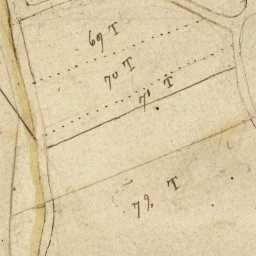 69 T
70 T
71 T
72 T